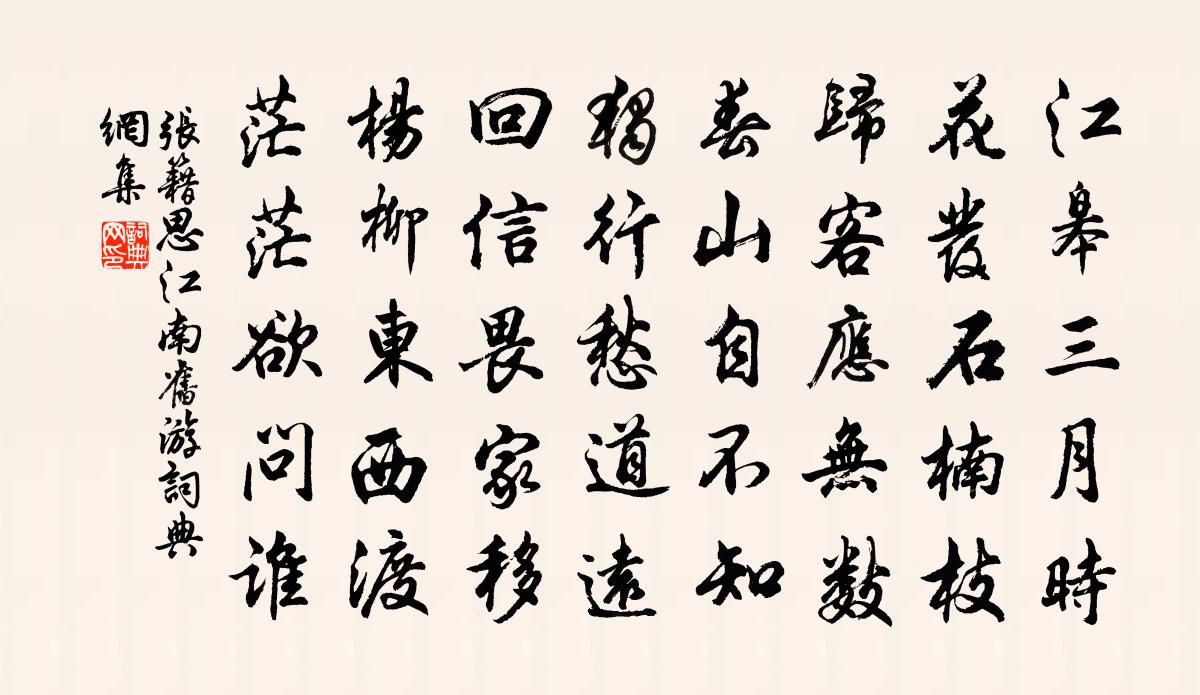 江皋三月時
花發石楠枝
歸客應無數
春山自不知
獨行愁道遠
回信畏家移
楊柳東西渡
茫茫欲問誰
張籍思江南舊游詞典
網集
詞典
网印